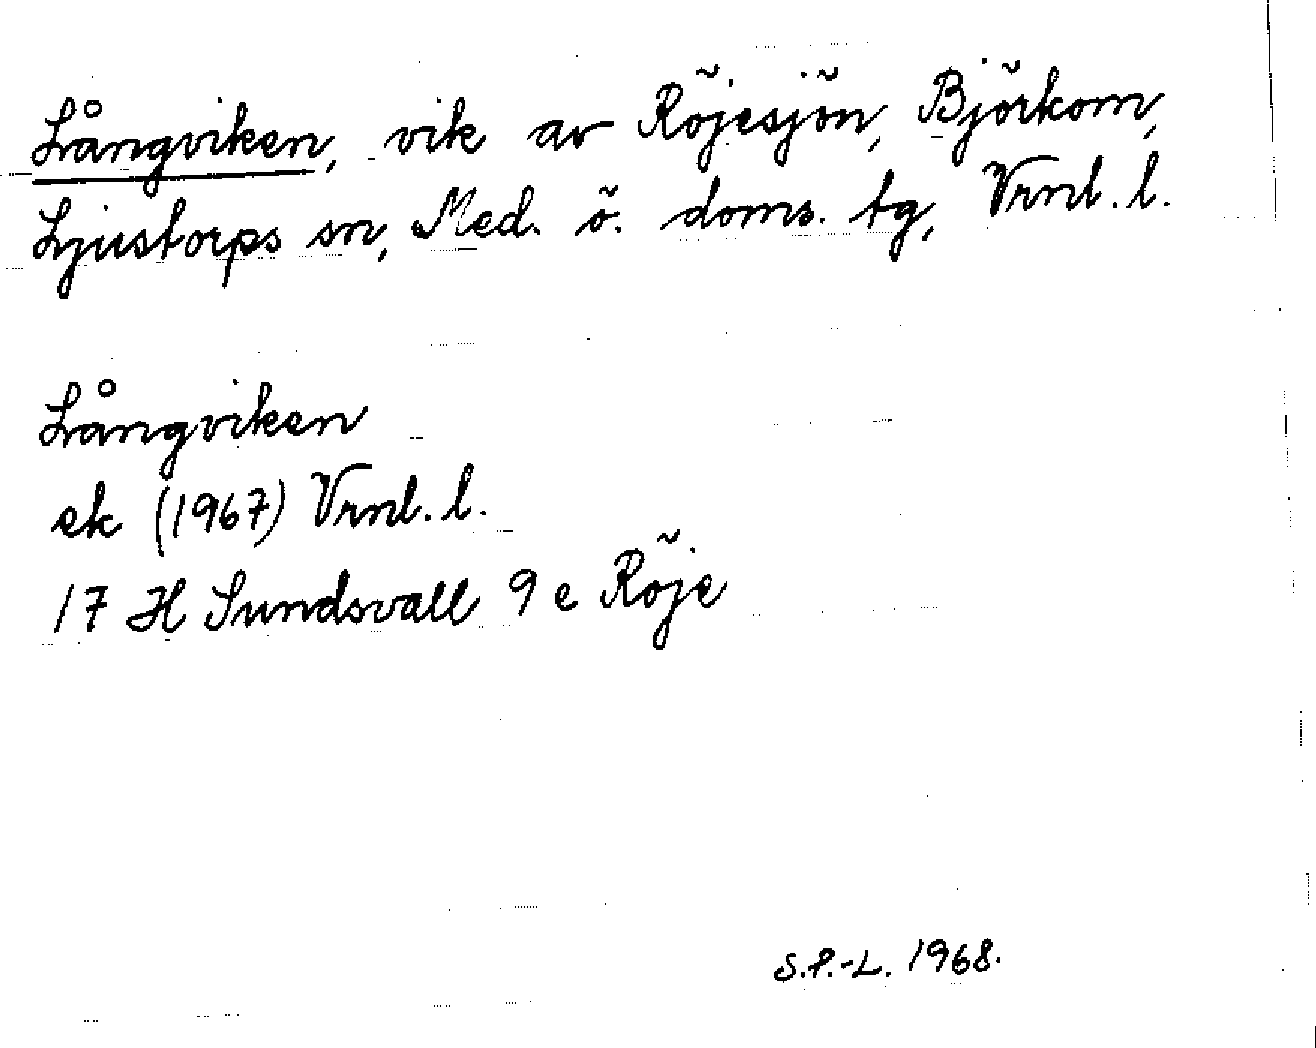 Långviken, vik av Röjesjön, Björkom,
Ljustorps sn, Med. ö. doms. tg, Vrnl. l.
Långviken
ek (1967) Vrnl. l.
17 H Sundsvall 9 e Röje
S.P.-L. 1968.